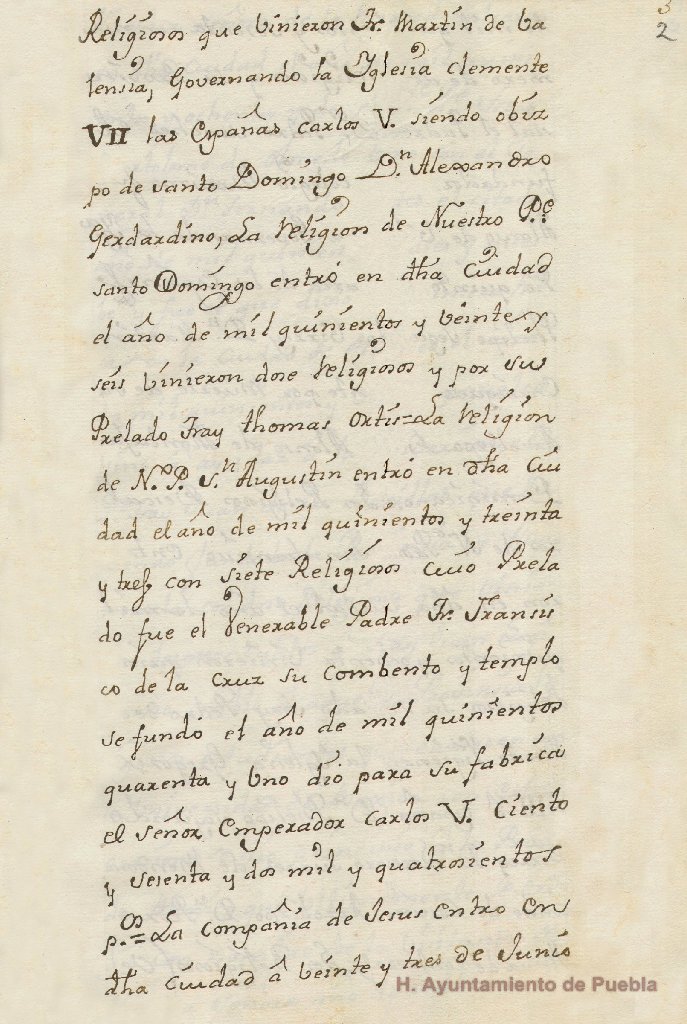 3
2
Religiosos que vinieron Fr. Martin de Va
lensia, Governando la Yglesia clemente
VII las Españas carlos V. siendo obiz
po de santo Domingo D.n Alexandro
Gerdardino, La Religion de Nuestro P.e
santo Domingo entró en dha Ciudad
el año de mil quinientos y veinte y
seis vinieron dose Religiosos y por su
Prelado Fray thomas Ortis=La Religion
de N.o P. S.n Augustin entró en dha Ciu
dad el año de mil quinientos y treinta
y tres con siete Religiosos cuio Prela
do fue el Venerable Padre Fr. Fransis
co de la Cruz su Combento y templo
se fundó el año de mil quinientos
quarenta y Uno dió para su fabrica
el señor Emperador Carlos V. Ciento
y sesenta y dos mil y quatrosientos
p.os=La Compañia de Jesus entro en
dha Ciudad â veinte y tres de Junio
H. Ayuntamiento de Puebla